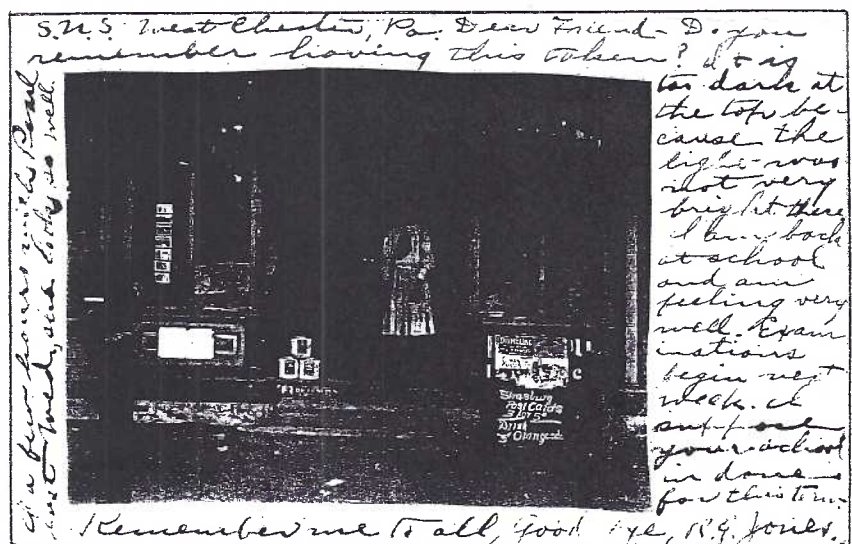 S.N.S. West Chester, Pa. Dear Friend - Do you
remember having this taken? It is
too dark at
the top be-
cause the
light was
not very
bright there
I am back
at school
and am
feeling very
well. Exam
inations
begin next
week. I
suppose
your school
is done
for this term.
Remember me to all, Good bye, R.G. Jones.
a few hours with Pearl
last Wed., she looks so well.
Strasburg
Post Cards
3 for 5¢
Drink
Orangeade